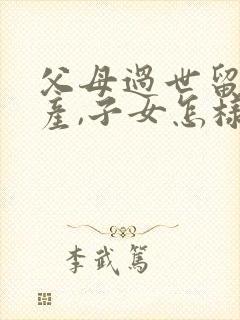 父母過世留
產,子女怎樣
李武篤